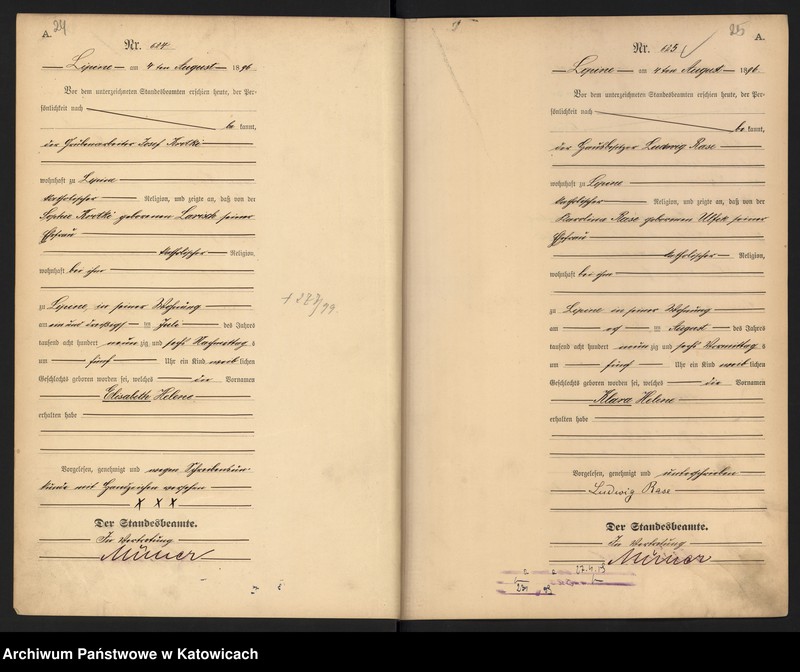 A. 24
Nr. 684.
Lipine am 4ten August 1896.
Vor dem unterzeichneten Standesbeamten erschien heute, der Per-
sönlichkeit nach
be kannt,
der Grubenarbeiter Josef Krotki
wohnhaft zu Lipine
katholischer Religion, und zeigte an, daß von der
Sophie Krotki geborenen Larisch seiner
Ehefrau
katholischer Religion,
wohnhaft bei ihm
zu Lipine, in seiner Wohnung
am ein und dreißigsten Juli des Jahres
tausend acht hundert neun zig und sechs Nachmittags
um fünf Uhr ein Kind weib lichen
Geschlechts geboren worden sei, welches die Vornamen
Elisabeth Helene
erhalten habe
Vorgelesen, genehmigt und wegen Schreibensun-
kunde mit Handzeichen versehen
X X X
Der Standesbeamte.
In Vertretung
+ 277/99
25 A.
Nr. 685
Lipine am 4ten August 1896.
Vor dem unterzeichneten Standesbeamten erschien heute, der Per-
sönlichkeit nach
be kannt,
der Hausbesitzer Ludwig Rase
wohnhaft zu Lipine
katholischer Religion, und zeigte an, daß von der
Karolina Rase geborenen seiner
Ehefrau
katholischer Religion,
wohnhaft bei ihm
zu Lipine in seiner Wohnung
am August des Jahres
tausend acht hundert neun zig und sechs Vormittag s
um fünf Uhr ein Kind weib lichen
Geschlechts geboren worden sei, welches die Vornamen
Klara Helene
erhalten habe
Vorgelesen, genehmigt und unterschrieben
Ludwig Rase
Der Standesbeamte.
In Vertretung
Archiwum Państwowe w Katowicach